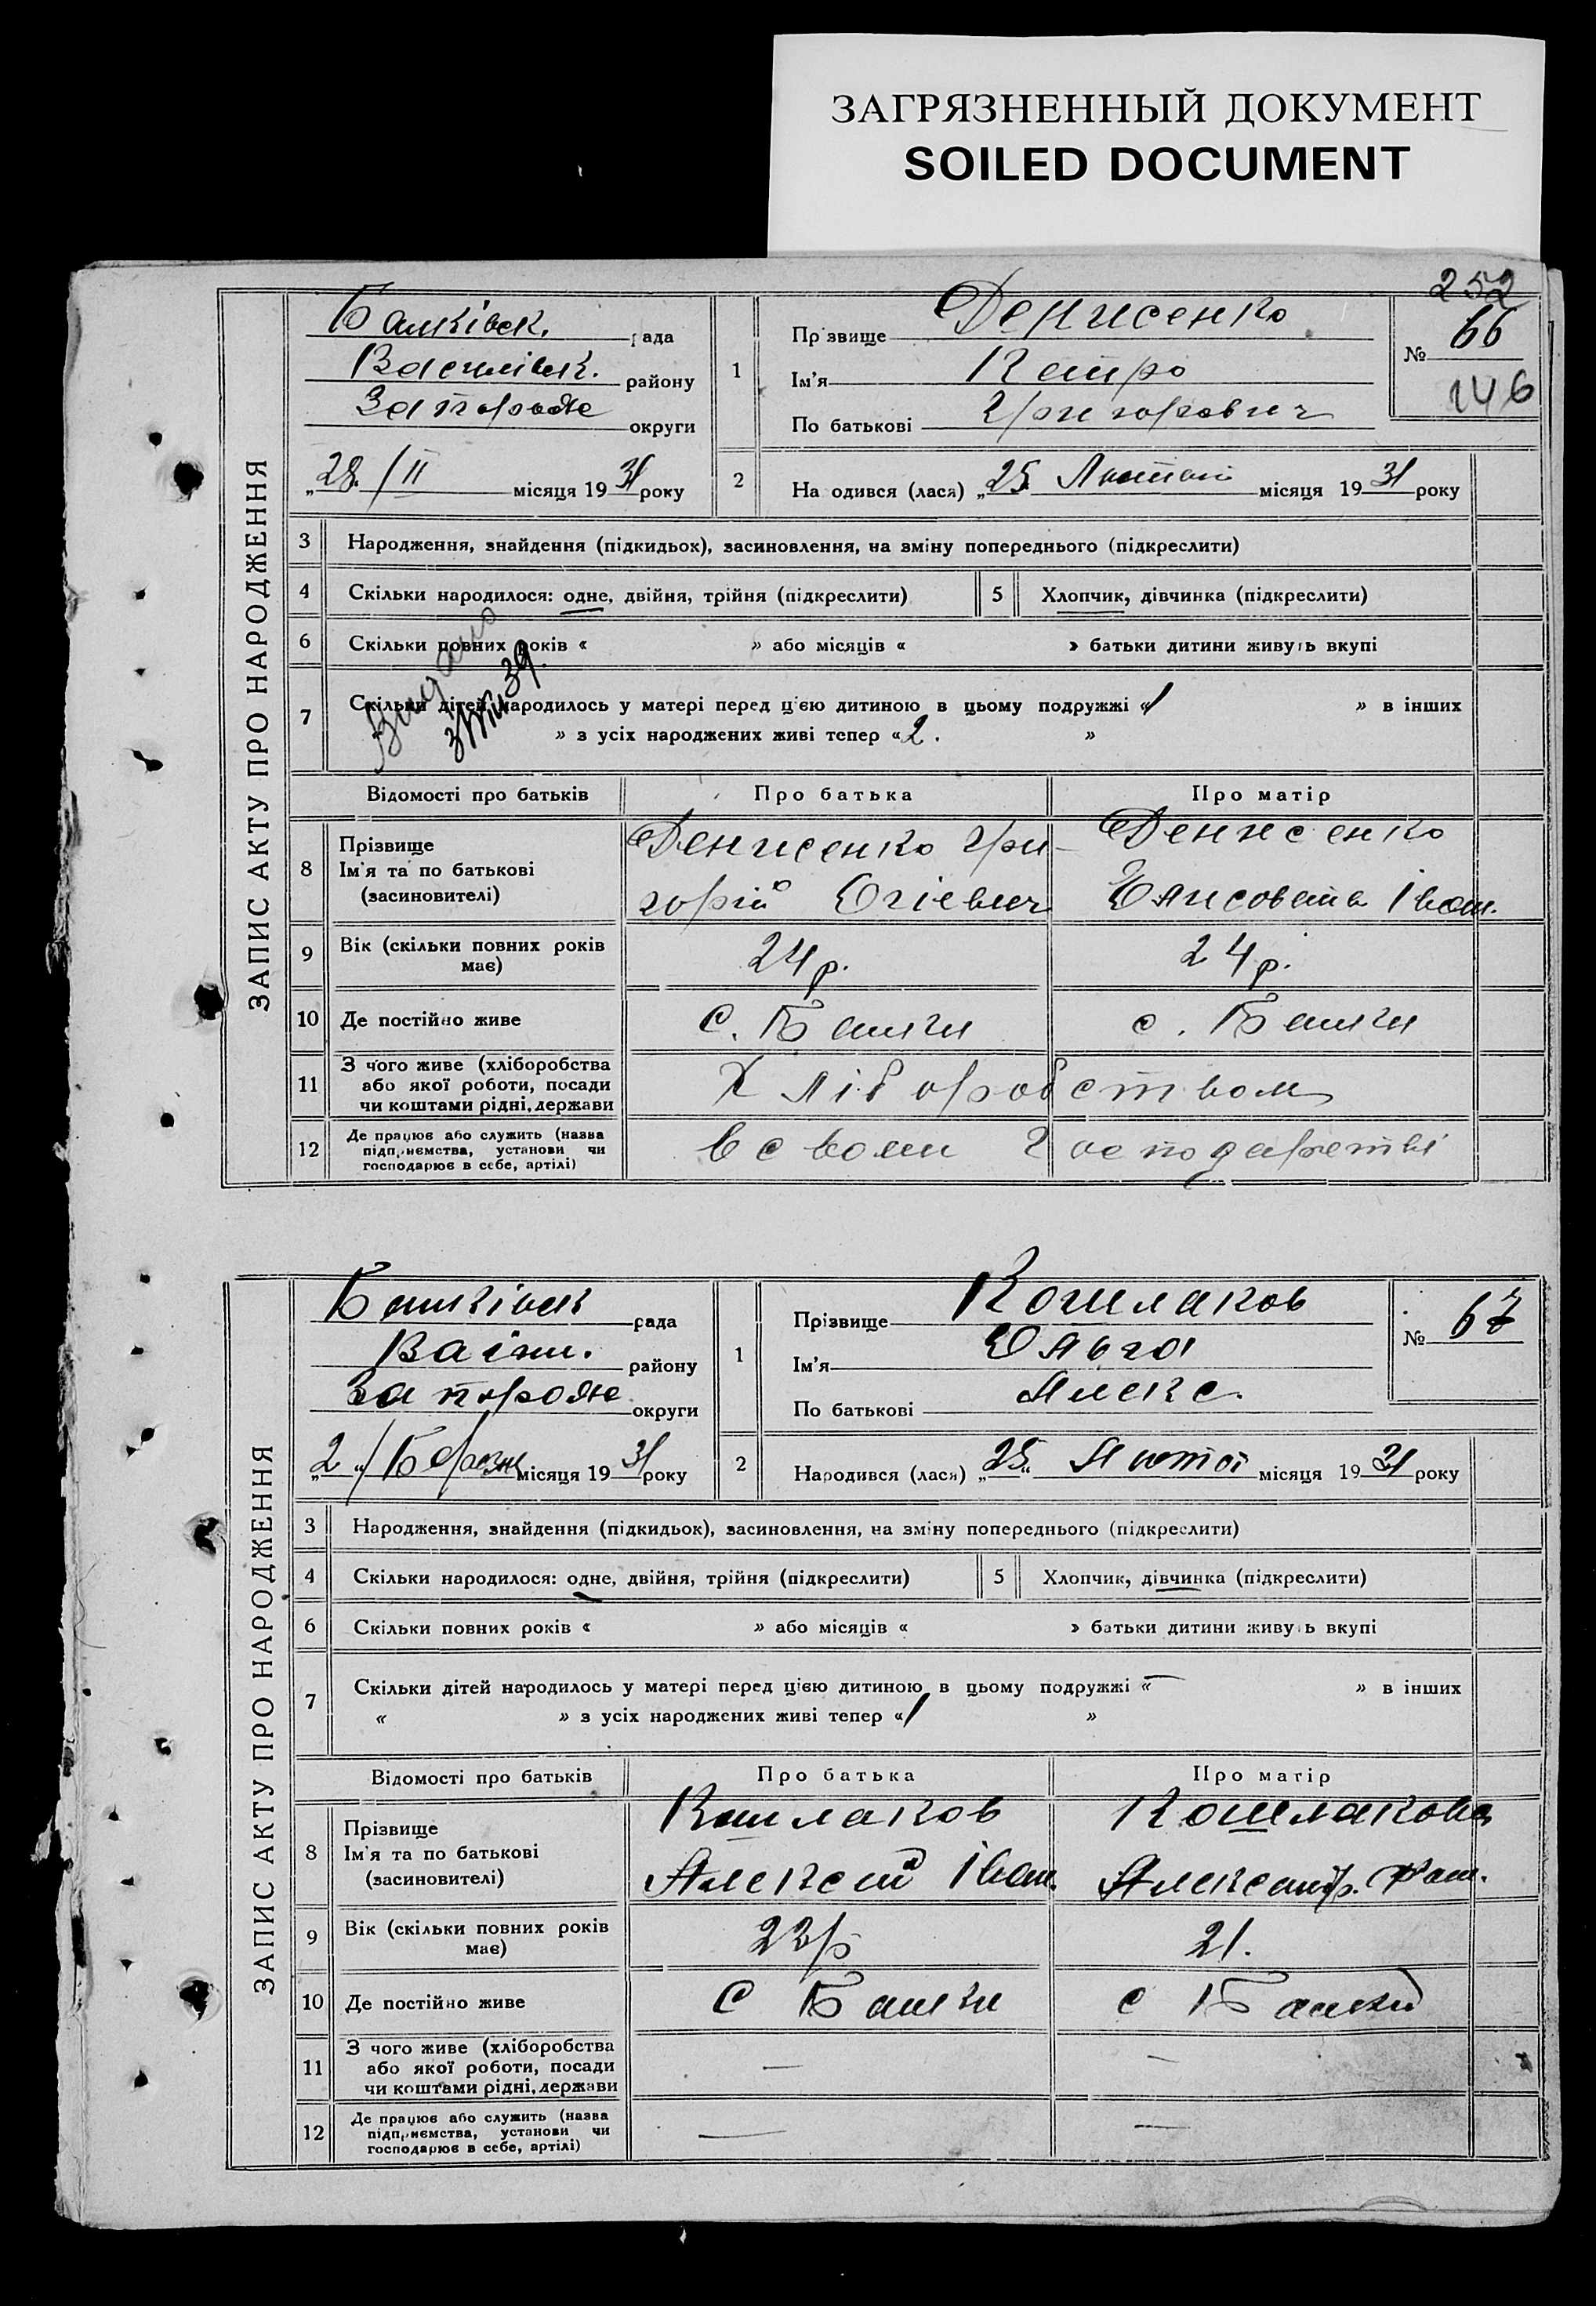 ЗАГРЯЗНЕННЫЙ ДОКУМЕНТ
SOILED DOCUMENT
252
ЗАПИС АКТУ ПРО НАРОДЖЕННЯ
Балківськ. рада
Василівськ. району
Запорож округи
„28./II місяця 1931 року
1
Прізвище Денисенко
Ім'я Петро
По батькові Григорович
№ 66
146
2
Народився (лася) „25 Лютого місяця 1931 року
3 Народження, знайдення (підкидьок), засиновлення, на зміну попереднього (підкреслити)
4 Скільки народилося: одне, двійня, трійня (підкреслити) 5 Хлопчик, дівчинка (підкреслити)
6 Скільки повних років « » або місяців « » батьки дитини живуть вкупі
Видано
39.
7 Скільки дітей народилось у матері перед цією дитиною в цьому подружжі «1 » в інших
» з усіх народжених живі тепер «2. »
Відомості про батьків Про батька Про матір
8 Прізвище Ім'я та по батькові (засновителі)
Денисенко Гри-
горій
Денисенко
Елисовета Іван.
9 Вік (скільки повних років має) 24 р. 24 р.
10 Де постійно живе с. Балки с. Балки
11 З чого живе (хліборобства або якої роботи, посади чи коштами рідні, держави Хліборобством
12 Де працює або служить (назва підприємства, установи чи господарює в себе, артілі) в своем господарстві
ЗАПИС АКТУ ПРО НАРОДЖЕННЯ
Балківськ рада
району
Запорож округи
„2„/Березн місяця 1931 року
1
Прізвище Кошлаков
Ім'я Ольга
По батькові Алекс.
№ 67
2
Народився (лася) „25„ Лютого місяця 1931 року
3 Народження, знайдення (підкидьок), засиновлення, на зміну попереднього (підкреслити)
4 Скільки народилося: одне, двійня, трійня (підкреслити) 5 Хлопчик, дівчинка (підкреслити)
6 Скільки повних років « » або місяців « » батьки дитини живуть вкупі
7 Скільки дітей народилось у матері перед цією дитиною в цьому подружжі «— » в інших
« » з усіх народжених живі тепер «1 »
Відомості про батьків Про батька Про матір
8 Прізвище Ім'я та по батькові (засиновителі)
Кошлаков
Алексей Іван.
Кошлакова
Александр.
9 Вік (скільки повних років має) 22 р 21.
10 Де постійно живе С Балки с Балки
11 З чого живе (хліборобства або якої роботи, посади чи коштами рідні, держави — —
12 Де працює або служить (назва підприємства, установи чи господарює в себе, артілі) — —